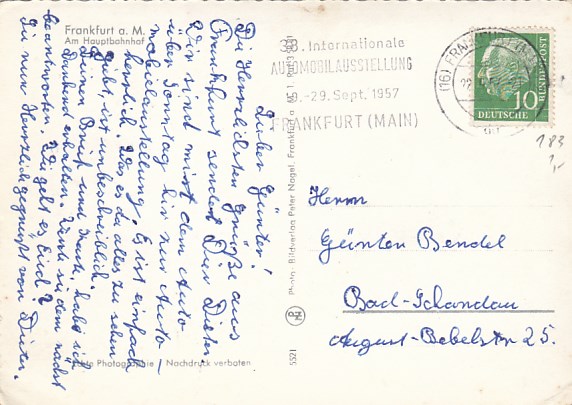 Frankfurt a. M.
Am Hauptbahnhof
Lieber Günter!
Die Herzlichsten Grüße aus
Frankfurt sendet Dir Dieter.
Wir sind mit dem Auto
über Sonntag hir zur Auto-
mobilausstellung. Es ist einfach
herrlich. Was es da alles zu sehen
gibt, ist unbeschreiblich.
Deinen Brief und Karte habe ich
Dankend erhalten. Werde sie dem nächst
beantworten. Wie geht es Euch?
Sei nun Herzlich gegrüßt von Dieter.
Echte Photographie / Nachdruck verboten
Photo: Bildverlag Peter Nagel, Frankfurt a. M. 1
5521
38. Internationale
AUTOMOBILAUSSTELLUNG
-29. Sept. 1957
FRANKFURT (MAIN)
(16) FRANKFURT
DEUTSCHE
BUNDESPOST
10
183
1,-
Herrn
Günter Bendel
Bad-Schandau
August-Bebelstr 25.